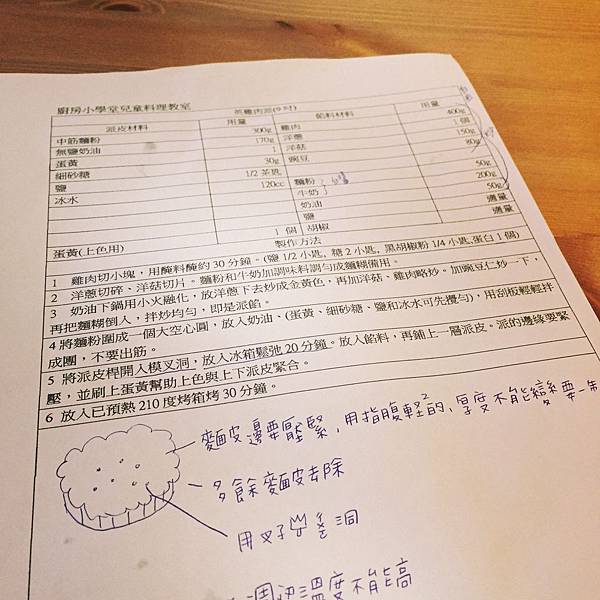 廚房小學堂兒童料理教室 英雞肉派(9吋)
派皮材料 用量 餡料材料 用量
中筋麵粉 300g 雞肉 400g
無鹽奶油 170g 洋蔥 1個
蛋黃 1 洋菇 150g
細砂糖 30g 豌豆 80g
鹽 1/2 茶匙
冰水 120cc 麵粉 50g
牛奶 200g
奶油 50g
鹽 適量
蛋黃(上色用) 1 個 胡椒 適量
製作方法
1 雞肉切小塊，用醃料醃約 30 分鐘。(鹽 1/2 小匙, 糖 2 小匙, 黑胡椒粉 1/4 小匙,蛋白 1 個)
2 洋蔥切碎、洋菇切片。麵粉和牛奶加調味料調勻成麵糊備用。
3 奶油下鍋用小火融化，放洋蔥下去炒成金黃色，再加洋菇、雞肉略炒。加豌豆仁炒一下，
再把麵糊倒人，拌炒均勻，即是派餡。
4 將麵粉圍成一個大空心圓，放入奶油、(蛋黃、細砂糖、鹽和冰水可先攪勻)，用刮板輕輕拌
成團，不要出筋。
5 將派皮桿開入模叉洞，放入冰箱鬆弛 20 分鐘。放入餡料，再鋪上一層派皮。派的邊緣要緊
壓，並刷上蛋黃幫助上色與上下派皮緊合。
6 放入已預熱 210 度烤箱烤 30 分鐘。
麵皮邊要壓緊，用指腹輕2的，厚度不能變要一
多餘麵皮去除
用叉子 洞
溫度不能高